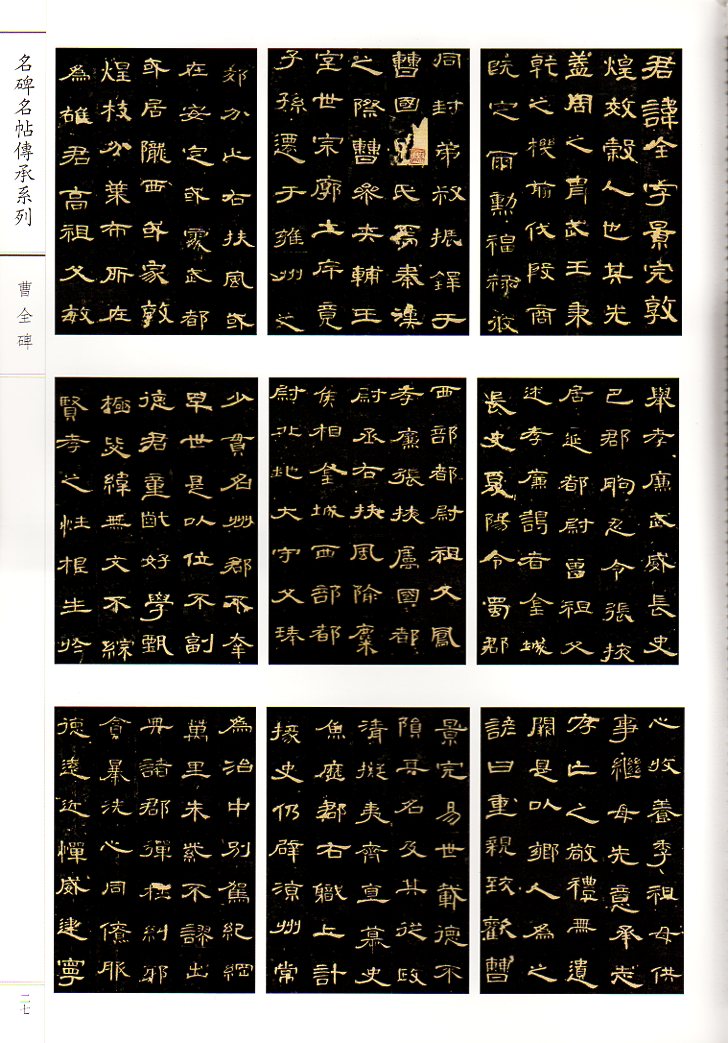 名碑名帖傳承系列
曹全碑
君諱全字景完敦
煌效穀人也其先
蓋周之胄武王秉
乾之機翦伐殷商
既定爾勳福祿攸
同封弟叔振鐸于
曹國氏焉秦漢
之際曹參夾輔王
室世宗廓土斥竟
子孫遷于雍州之
郊分止右扶風或
在安定或處武都
或居隴西或家敦
煌枝分葉布所在
為雄君高祖父敏
舉孝廉武威長史
巴郡朐忍令張掖
居延都尉曾祖父
述孝廉謁者金城
長史夏陽令蜀郡
西部都尉祖父鳳
孝廉張掖屬國都
尉丞右扶風隃麋
侯相金城西部都
尉北地大守父琫
少貫名州郡不幸
早世是以位不副
德君童齔好學甄
極毖緯無文不綜
賢孝之性根生於
心收養季祖母供
事繼母先意承志
存亡之敬禮無遺
闕是以鄉人為之
諺曰重親致歡曹
景完易世載德不
隕其名及其從政
清擬夷齊直慕史
魚歷郡右職上計
掾史仍辟涼州常
為治中別駕紀綱
萬里朱紫不謬出
典諸郡彈枉糾邪
貪暴洗心同僚服
德遠近憚威建寧
二七